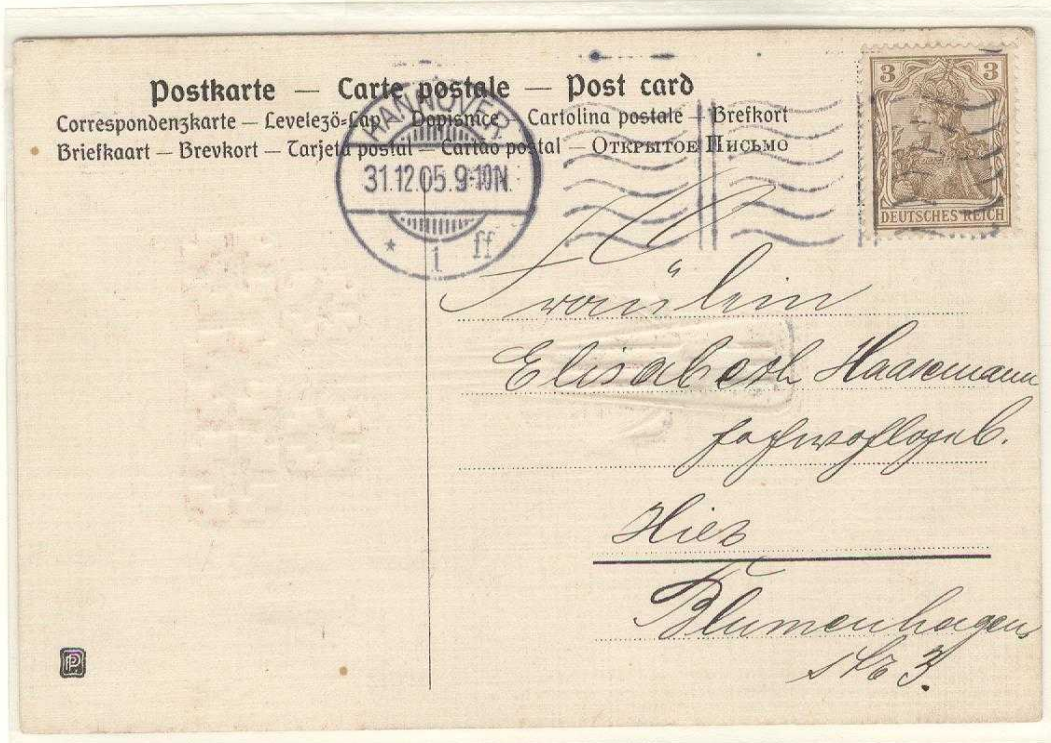 Postkarte — Carte postale — Post card
Correspondenzkarte — Levelező-Lap — Dopisnice — Cartolina postale — Brefkort
Briefkaart — Brevkort — Tarjeta postal — Cartão postal — Открытое Письмо
HANNOVER
31.12.05. 9-10N.
* 1 ff
3 3
DEUTSCHES REICH
Fräulein
Elisabeth
Hier
Blumenhagen
str 3.